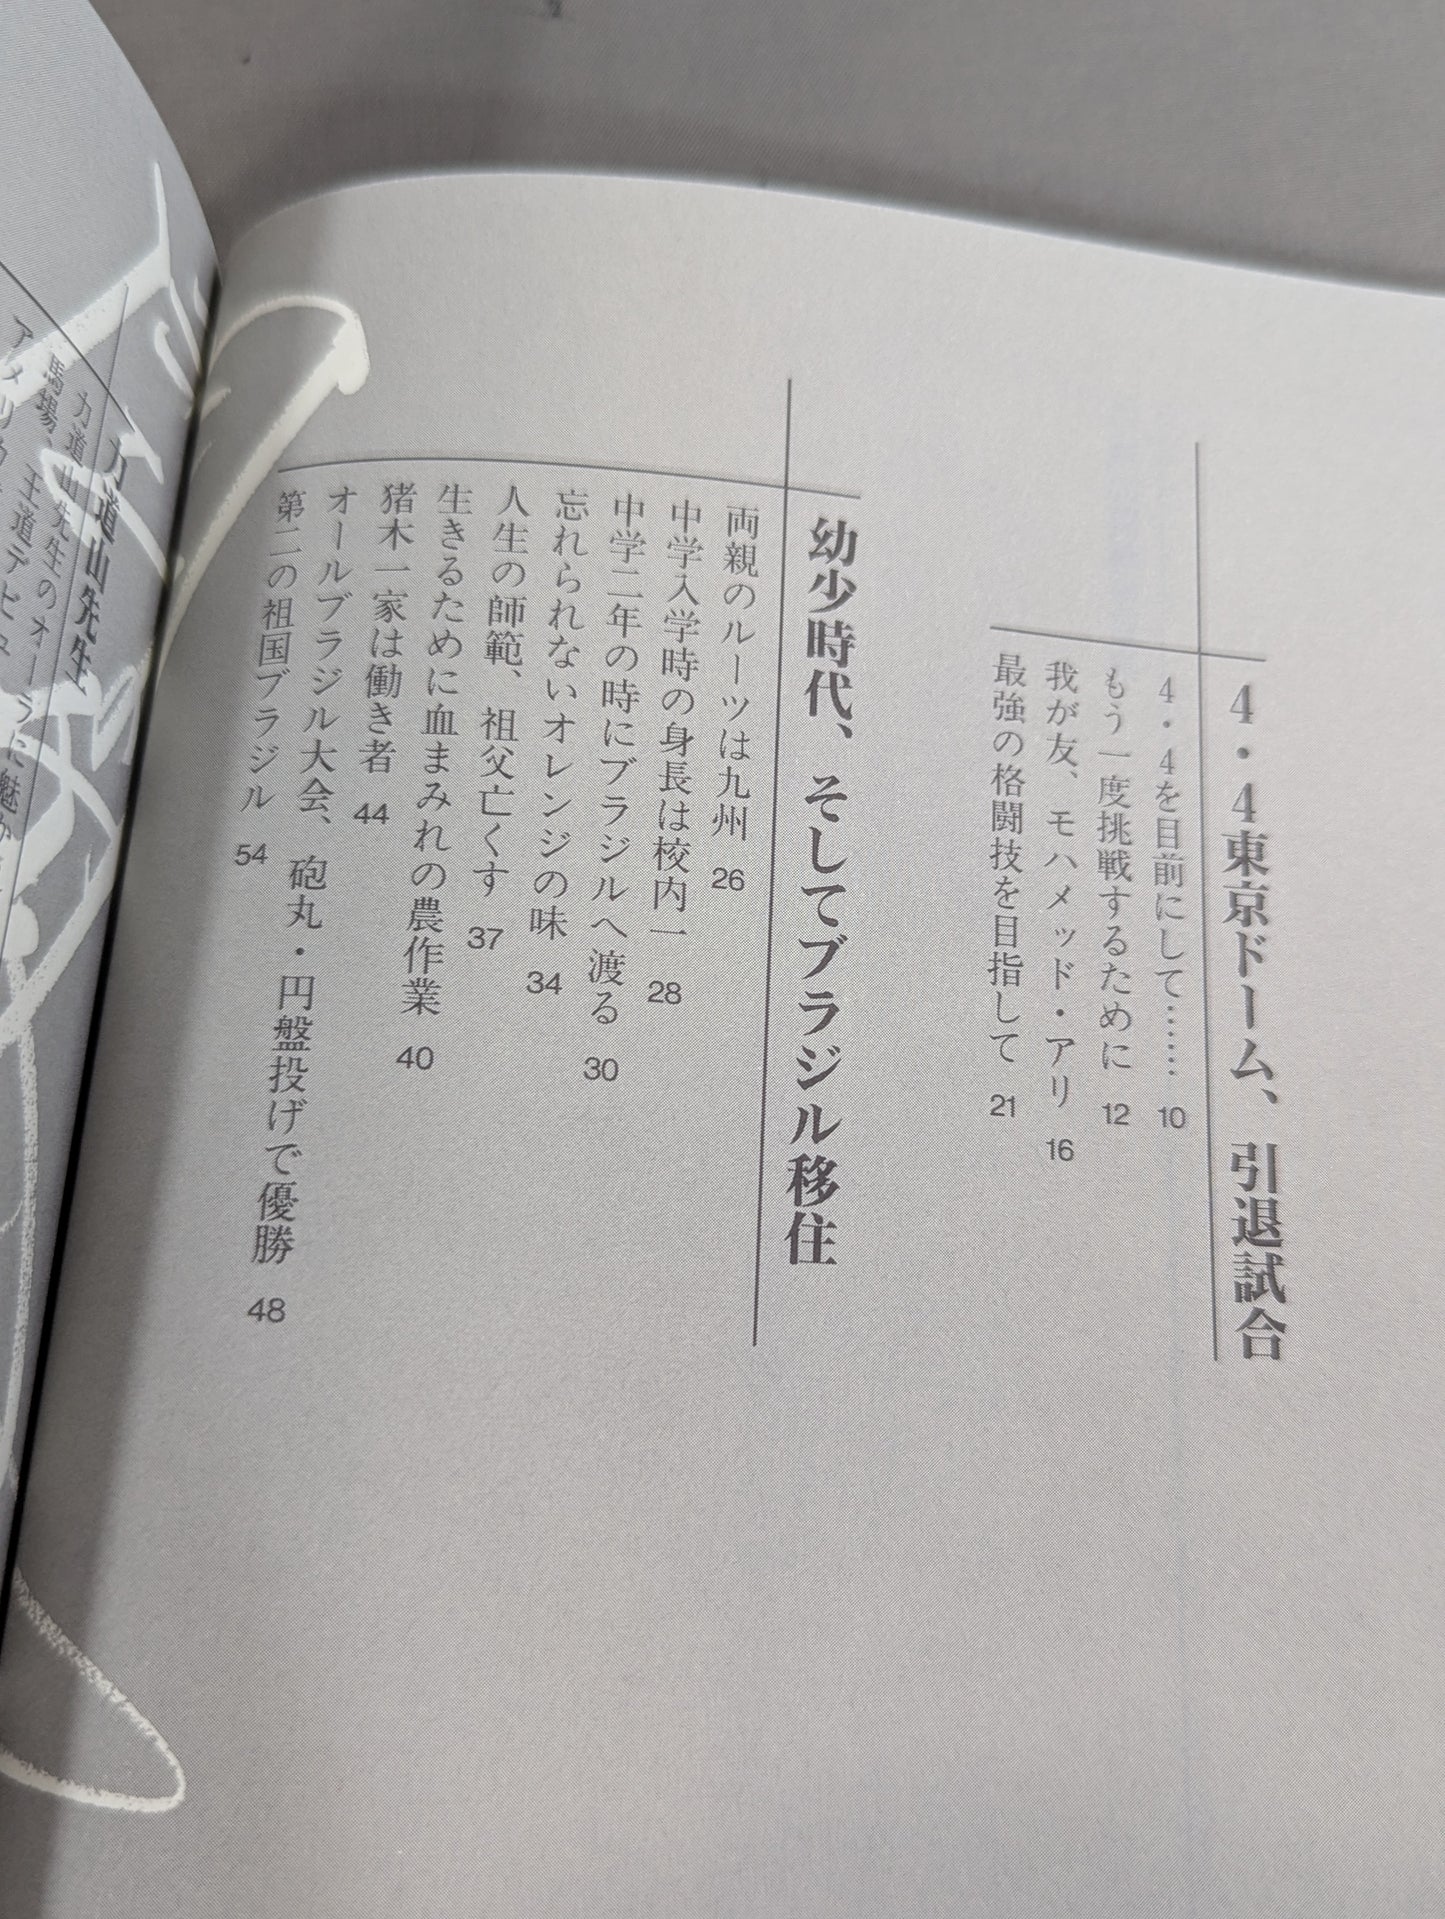 4・4東京ドーム、引退試合
4・4を目前にして…… 10
もう一度挑戦するために 12
我が友、モハメッド・アリ 16
最強の格闘技を目指して 21
幼少時代、そしてブラジル移住
両親のルーツは九州 26
中学入学時の身長は校内一 28
中学二年の時にブラジルへ渡る 30
忘れられないオレンジの味 34
人生の師範、祖父亡くす 37
生きるために血まみれの農作業 40
猪木一家は働き者 44
オールブラジル大会、砲丸・円盤投げで優勝 48
第二の祖国ブラジル 54
力道山先生
力道山先生のオーラに魅か
馬場、王道デビュ
アメリカ